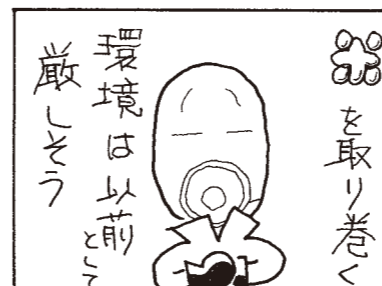 米を取り巻く
環境は以前として
厳しそう